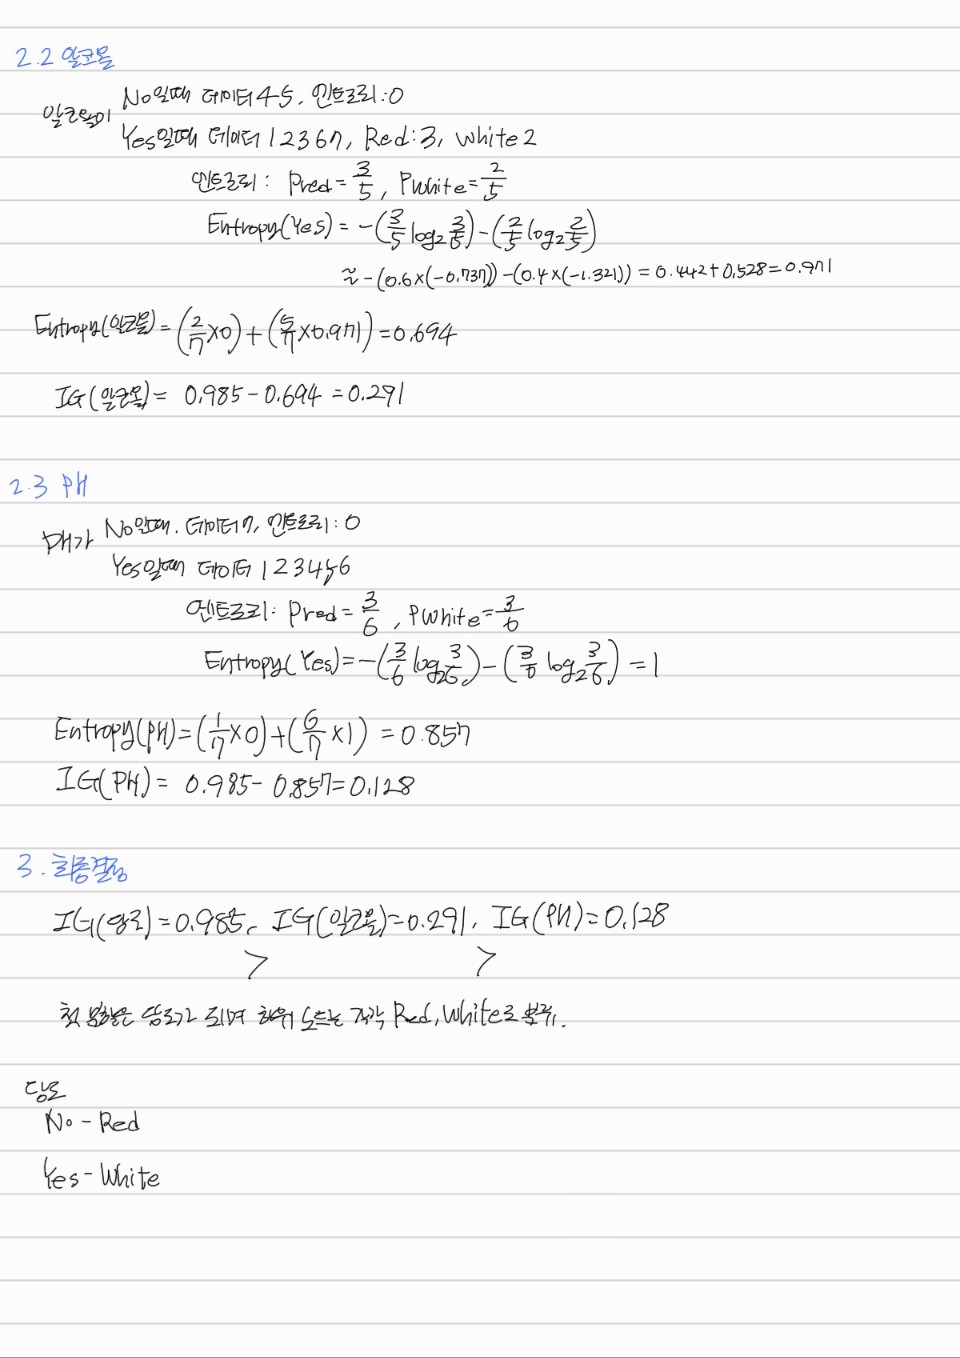 2.2 알코올
알코올이 No일때 데이터 4, 5, 엔트로피: 0
Yes일때 데이터 1 2 3 6 7, Red: 3, White 2
엔트로피: Pred = 3/5, Pwhite = 2/5
Entropy(Yes) = -(3/5 log₂ 3/5) - (2/5 log₂ 2/5)
≈ -(0.6×(-0.737)) - (0.4×(-1.321)) = 0.442 + 0.528 = 0.971
Entropy(알코올) = (2/7 × 0) + (5/7 × 0.971) = 0.694
IG(알코올) = 0.985 - 0.694 = 0.291
2.3 PH
PH가 No일때. 데이터 7, 엔트로피: 0
Yes일때 데이터 1 2 3 4 5 6
엔트로피: Pred = 3/6, Pwhite = 3/6
Entropy(Yes) = -(3/6 log₂ 3/6) - (3/6 log₂ 3/6) = 1
Entropy(PH) = (1/7 × 0) + (6/7 × 1) = 0.857
IG(PH) = 0.985 - 0.857 = 0.128
3. 최종결정
IG(당도) = 0.985, IG(알코올) = 0.291, IG(PH) = 0.128
> >
첫 분할은 당도가 되며 하위 노드는 각각 Red, White로 분류.
당도
No - Red
Yes - White